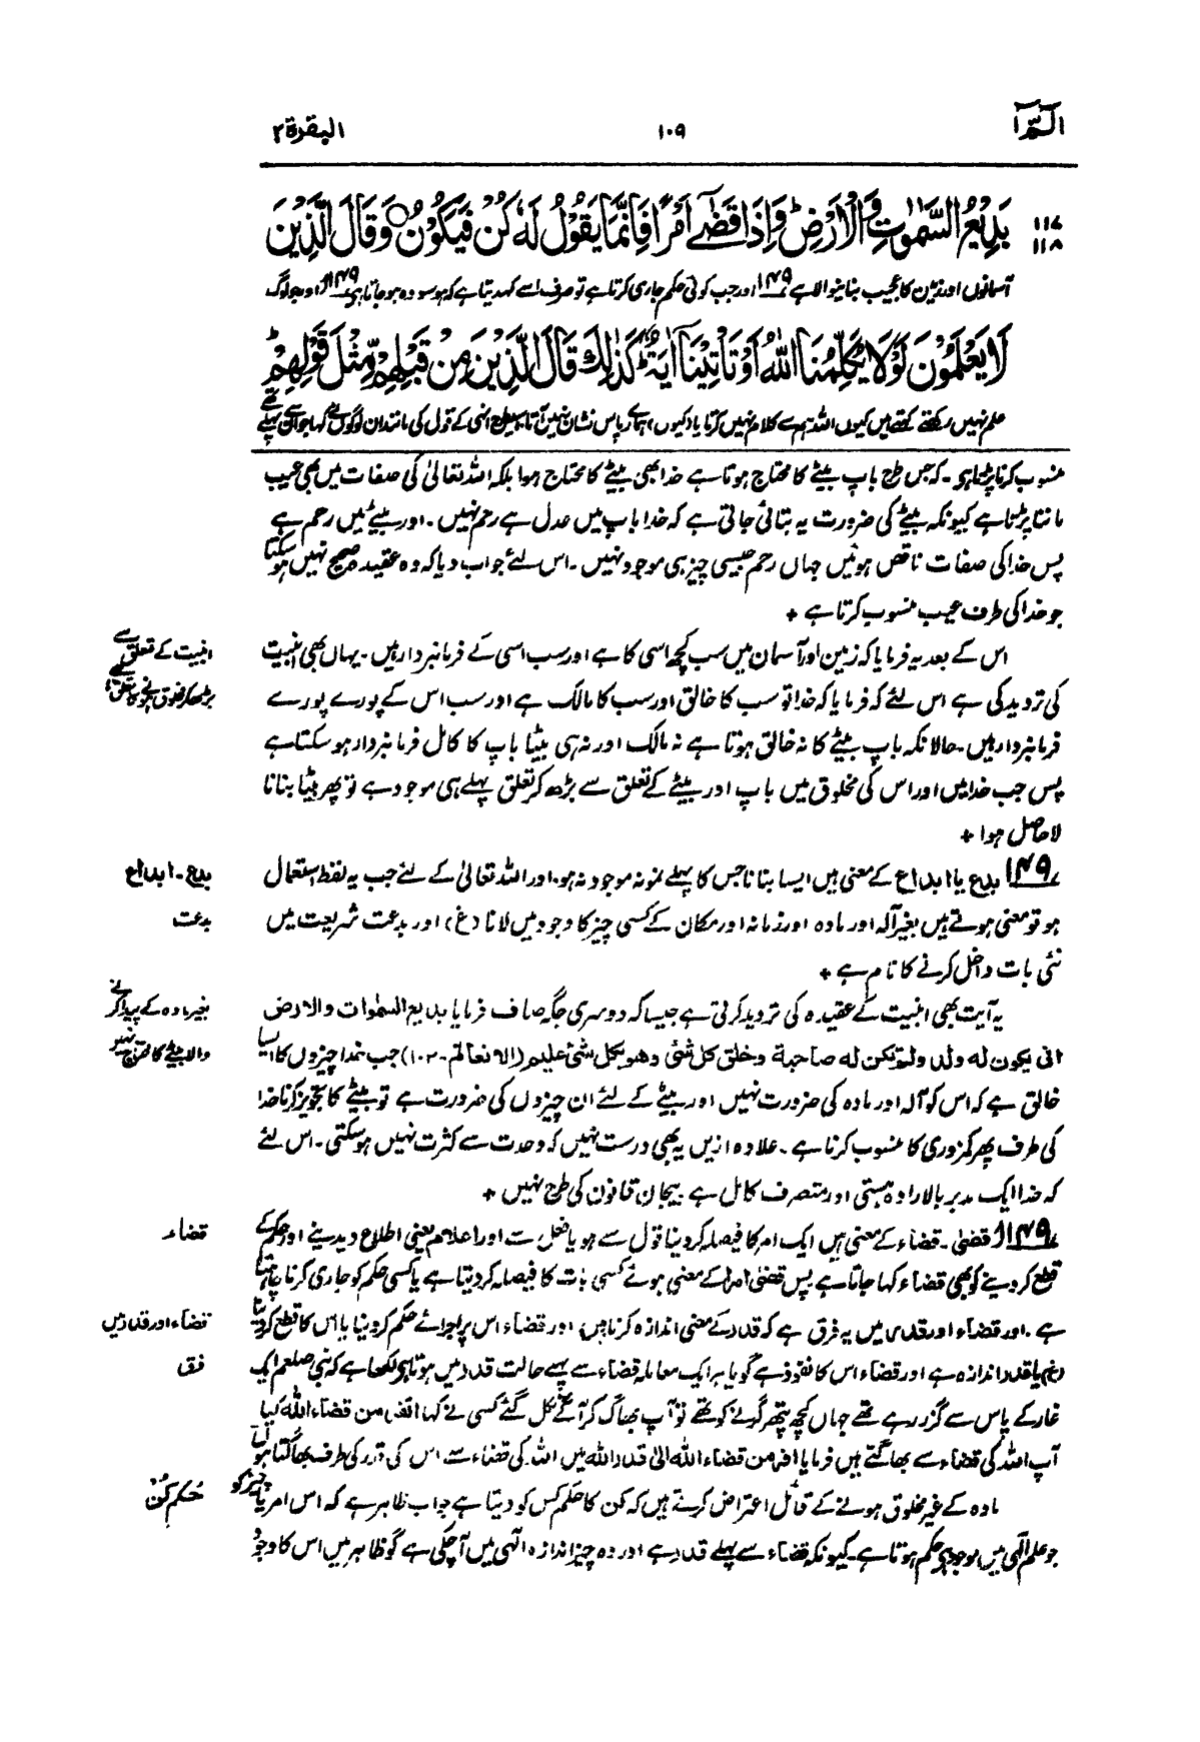 الٓمّٓ ۱
۱۰۹
البقرۃ ۲
۱۱۷ بَدِیْعُ السَّمٰوٰتِ وَالْاَرْضِ ؕ وَاِذَا قَضٰٓی اَمْرًا فَاِنَّمَا یَقُوْلُ لَهٗ کُنْ فَیَکُوْنُ ○ وَقَالَ الَّذِیْنَ
۱۱۸
آسمانوں اور زمین کا عجیب بنانیوالا ہے ۱۴۹ اور جب کوئی حکم جاری کرتا ہے تو صرف اسے کہدیتا ہے کہ ہو سو وہ ہو جاتا ہے ۱۴۹ا اور جو لوگ
لَا یَعْلَمُوْنَ لَوْلَا یُکَلِّمُنَا اللّٰهُ اَوْ تَاْتِیْنَاۤ اٰیَةٌ ؕ کَذٰلِكَ قَالَ الَّذِیْنَ مِنْ قَبْلِهِمْ مِّثْلَ قَوْلِهِمْ ؕ
علم نہیں رکھتے کہتے ہیں کیوں اللہ ہم سے کلام نہیں کرتا یا کیوں ہمارے پاس نشان نہیں آتا اسی طرح انہی کے قول کی مانند ان لوگوں نے کہا جو ان سے پہلے تھے
منسوب کرنا پڑتا ہو۔ کہ جس طرح باپ بیٹے کا محتاج ہوتا ہے خدا بھی بیٹے کا محتاج ہوا بلکہ اللہ تعالیٰ کی صفات میں بھی عیب
ماننا پڑتا ہے کیونکہ بیٹے کی ضرورت یہ بتائی جاتی ہے کہ خدا باپ میں عدل ہے رحم نہیں۔ اور بیٹے میں رحم ہے
پس خدا کی صفات ناقص ہوئیں جہاں رحم جیسی چیز ہی موجود نہیں۔ اس لئے جواب دیا کہ وہ عقیدہ صحیح نہیں ہو سکتا
جو خدا کی طرف عیب منسوب کرتا ہے +
اس کے بعد یہ فرمایا کہ زمین اور آسمان میں سب کچھ اسی کا ہے اور سب اسی کے فرمانبردار ہیں۔ یہاں بھی ابنیت
ابنیت کے تعلق سے
کی تردید کی ہے اس لئے کہ فرمایا کہ خدا تو سب کا خالق اور سب کا مالک ہے اور سب اس کے پورے پورے
بڑھکر مخلوق ہونے کا تعلق ہے
فرمانبردار ہیں۔ حالانکہ باپ بیٹے کا نہ خالق ہوتا ہے نہ مالک اور نہ ہی بیٹا باپ کا کامل فرمانبردار ہو سکتا ہے
پس جب خدا میں اور اس کی مخلوق میں باپ اور بیٹے کے تعلق سے بڑھ کر تعلق پہلے ہی موجود ہے تو پھر بیٹا بنانا
لا حاصل ہوا +
۱۴۹ بدع یا ابداع کے معنی ہیں ایسا بنانا جس کا پہلے نمونہ موجود نہ ہو۔ اور اللہ تعالیٰ کے لئے جب یہ لفظ استعمال
بدع۔ ابداع
ہو تو معنی ہوتے ہیں بغیر آلہ اور مادہ اور زمانہ اور مکان کے کسی چیز کا وجود میں لانا (غ) اور بدعت شریعت میں
بدعت
نئی بات داخل کرنے کا نام ہے +
یہ آیت بھی ابنیت کے عقیدہ کی تردید کرتی ہے جیسا کہ دوسری جگہ صاف فرمایا بدیع السمٰوات والارض
بغیر مادہ کے پیدا کرنے
انی یکون له ولد ولم تکن له صاحبة وخلق کل شئ وھو بکل شئ علیم (الانعام۔ ۱۰۲) جب خدا چیزوں کا ایسا
والا بیٹے کا محتاج نہیں
خالق ہے کہ اس کو آلہ اور مادہ کی ضرورت نہیں اور بیٹے کے لئے ان چیزوں کی ضرورت ہے تو بیٹے کا تجویز کرنا خدا
کی طرف پھر کمزوری کا منسوب کرنا ہے۔ علاوہ ازیں یہ بھی درست نہیں کہ وحدت سے کثرت نہیں ہو سکتی۔ اس لئے
کہ خدا ایک مدبر بالارادہ ہستی اور متصرف کامل ہے بیجان قانون کی طرح نہیں +
۱۴۹ا قضٰی۔ قضاء کے معنی ہیں ایک امر کا فیصلہ کر دینا قول سے ہو یا فعل سے اور اعلام یعنی اطلاع دیدینے اور حکم کے
قضاء
قطع کر دینے کو بھی قضاء کہا جاتا ہے پس قضٰی امرا کے معنی ہوئے کسی بات کا فیصلہ کر دیتا ہے یا کسی حکم کو جاری کرنا چاہتا
ہے۔ اور قضاء اور قدر میں یہ فرق ہے کہ قدر کے معنی اندازہ کرنا ہیں اور قضاء اس پر اجرائے حکم کر دینا یا اس کا قطع کر دینا
قضاء اور قدر میں
(غ) یا قدر اندازہ ہے اور قضاء اس کا نفوذ ہے گویا ہر ایک معاملہ قضاء سے پہلے حالت قدر میں ہوتا ہے لکھا ہے کہ نبی صلعم ایک
فرق
غار کے پاس سے گزر رہے تھے جہاں کچھ پتھر گرنے کو تھے تو آپ بھاگ کر آگے نکل گئے کسی نے کہا اتفر من قضاء اللّٰه کیا
آپ اللہ کی قضاء سے بھاگتے ہیں فرمایا افر من قضاء اللّٰه الی قدر اللّٰه میں اللہ کی قضاء سے اس کی قدر کی طرف بھاگتا ہوں
مادہ کے غیر مخلوق ہونے کے قائل اعتراض کرتے ہیں کہ کن کا حکم کس کو دیتا ہے جواب ظاہر ہے کہ اس امر یا چیز کو
حُکمِ کُن
جو علم الٰہی میں موجود ہے حکم ہوتا ہے۔ کیونکہ قضاء سے پہلے قدر ہے اور وہ چیز اندازہ الٰہی میں آ چکی ہے گو ظاہر میں اس کا وجود